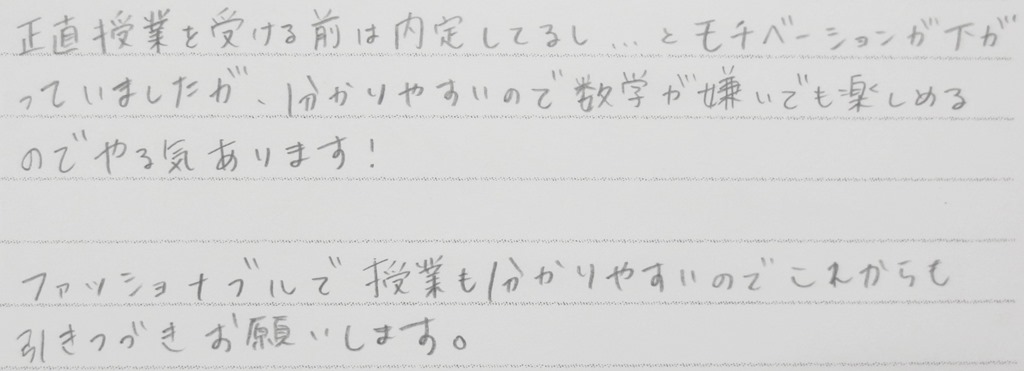 正直授業を受ける前は内定してるし...とモチベーションが下が
っていましたが、分かりやすいので数学が嫌いでも楽しめる
のでやる気あります!
ファッショナブルで授業も分かりやすいのでこれからも
引きつづきお願いします。